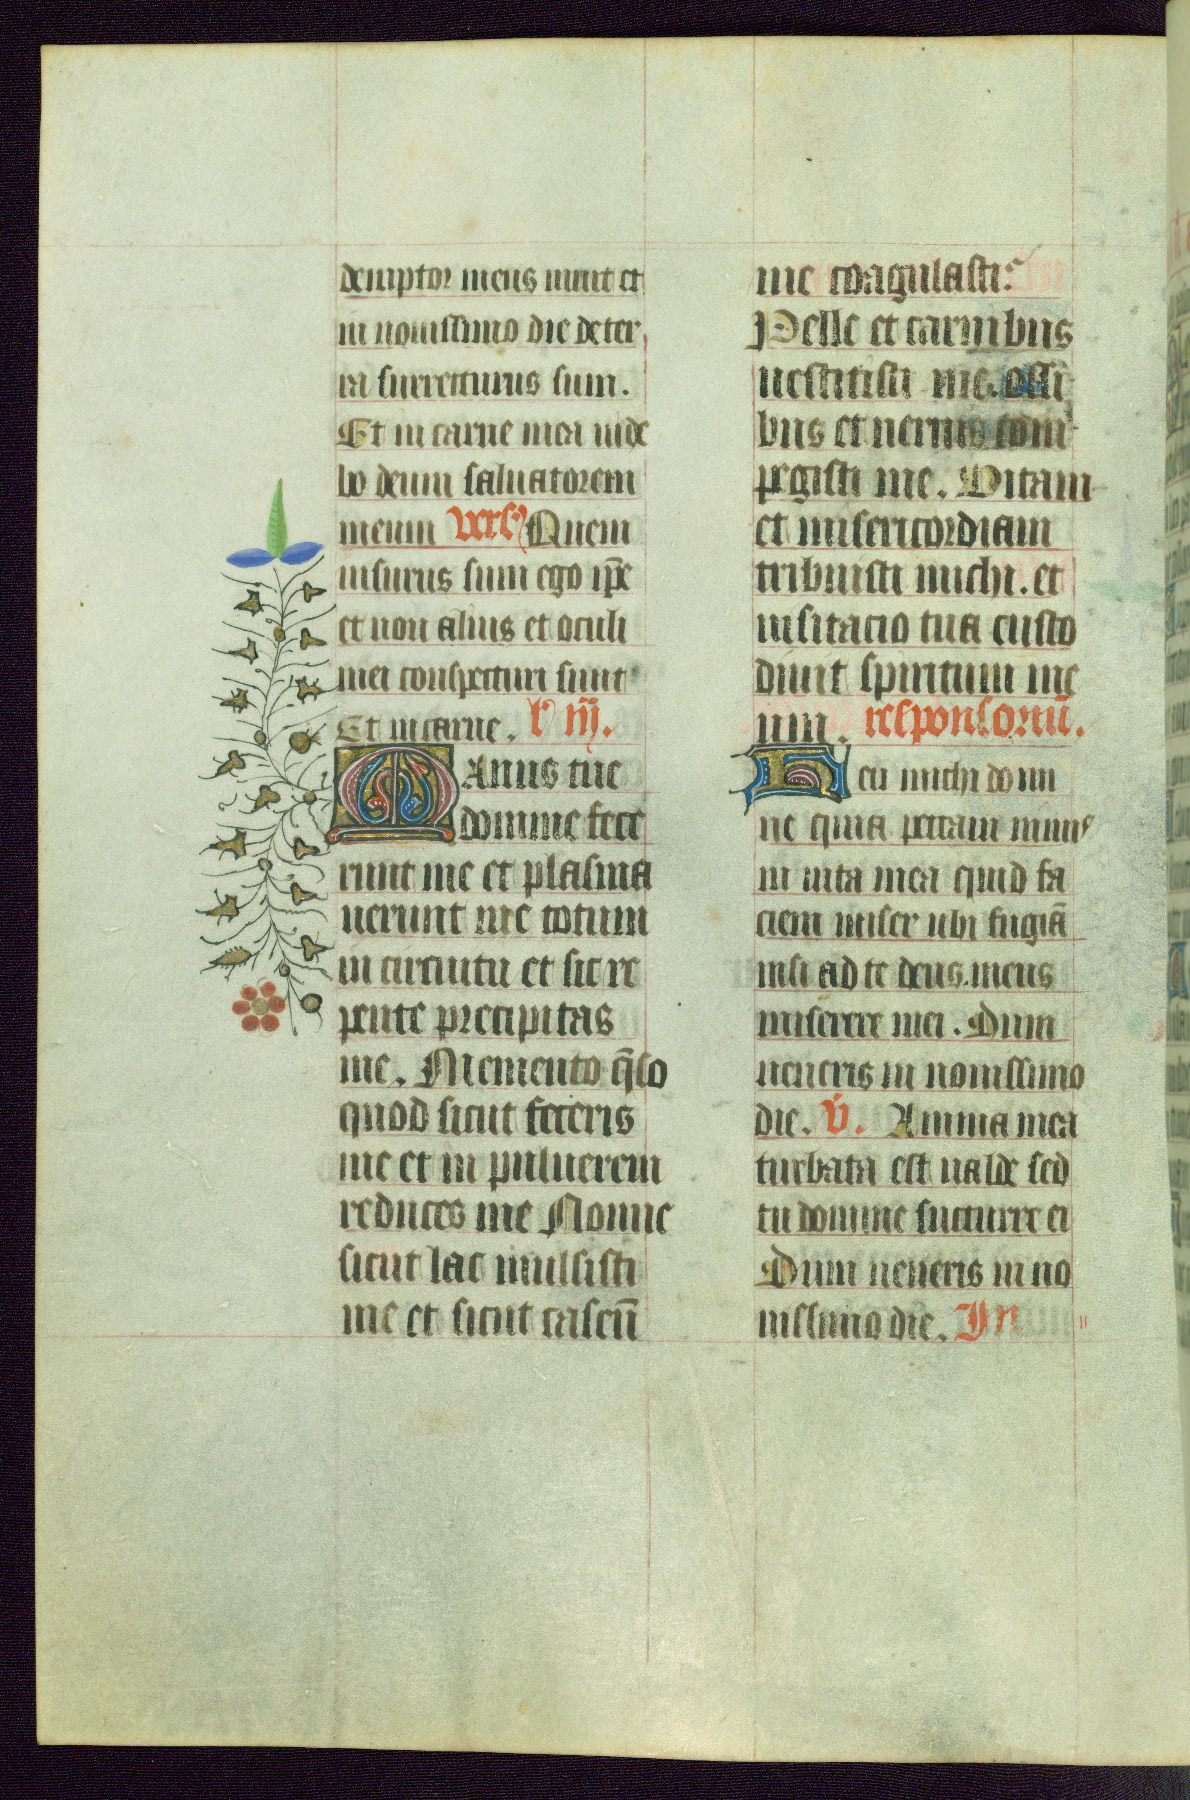 demptor meus uiuit et
in nouissimo die de ter
ra surrecturus sum.
Et in carne mea uide
bo deum saluatorem
meum vers9 Quem
uisurus sum ego ip̄e
et non alius et oculi
mei conspecturi sunt
Et in carne. l' iij.
Manus tue
domine fece
runt me et plasma
uerunt me totum
in circuitu et sic re
pente precipitas
me. Memento q̄so
quod sicut feceris
me et in puluerem
reduces me Nonne
sicut lac mulsisti
me et sicut caseū
me coagulasti:
Pelle et carnibus
uestitisti me. ossi
bus et neruis com
pegisti me. Vitam
et misericordiam
tribuisti michi. et
uisitacio tua custo
diuit spiritum me
um. responsoriū.
Heu michi domi
ne quia peccaui nimis
in uita mea quid fa
ciem miser ubi fugiā
nisi ad te deus meus
miserere mei. Dum
ueneris in nouissimo
die. v̇. Anima mea
turbata est ualde sed
tu domine succurre ei
Dum ueneris in no
uissimo die. In